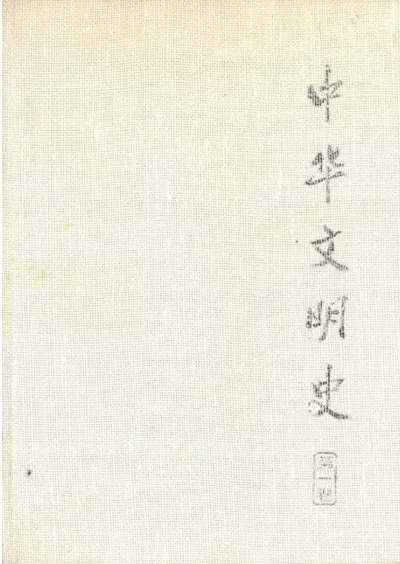 中华文明史
第一卷